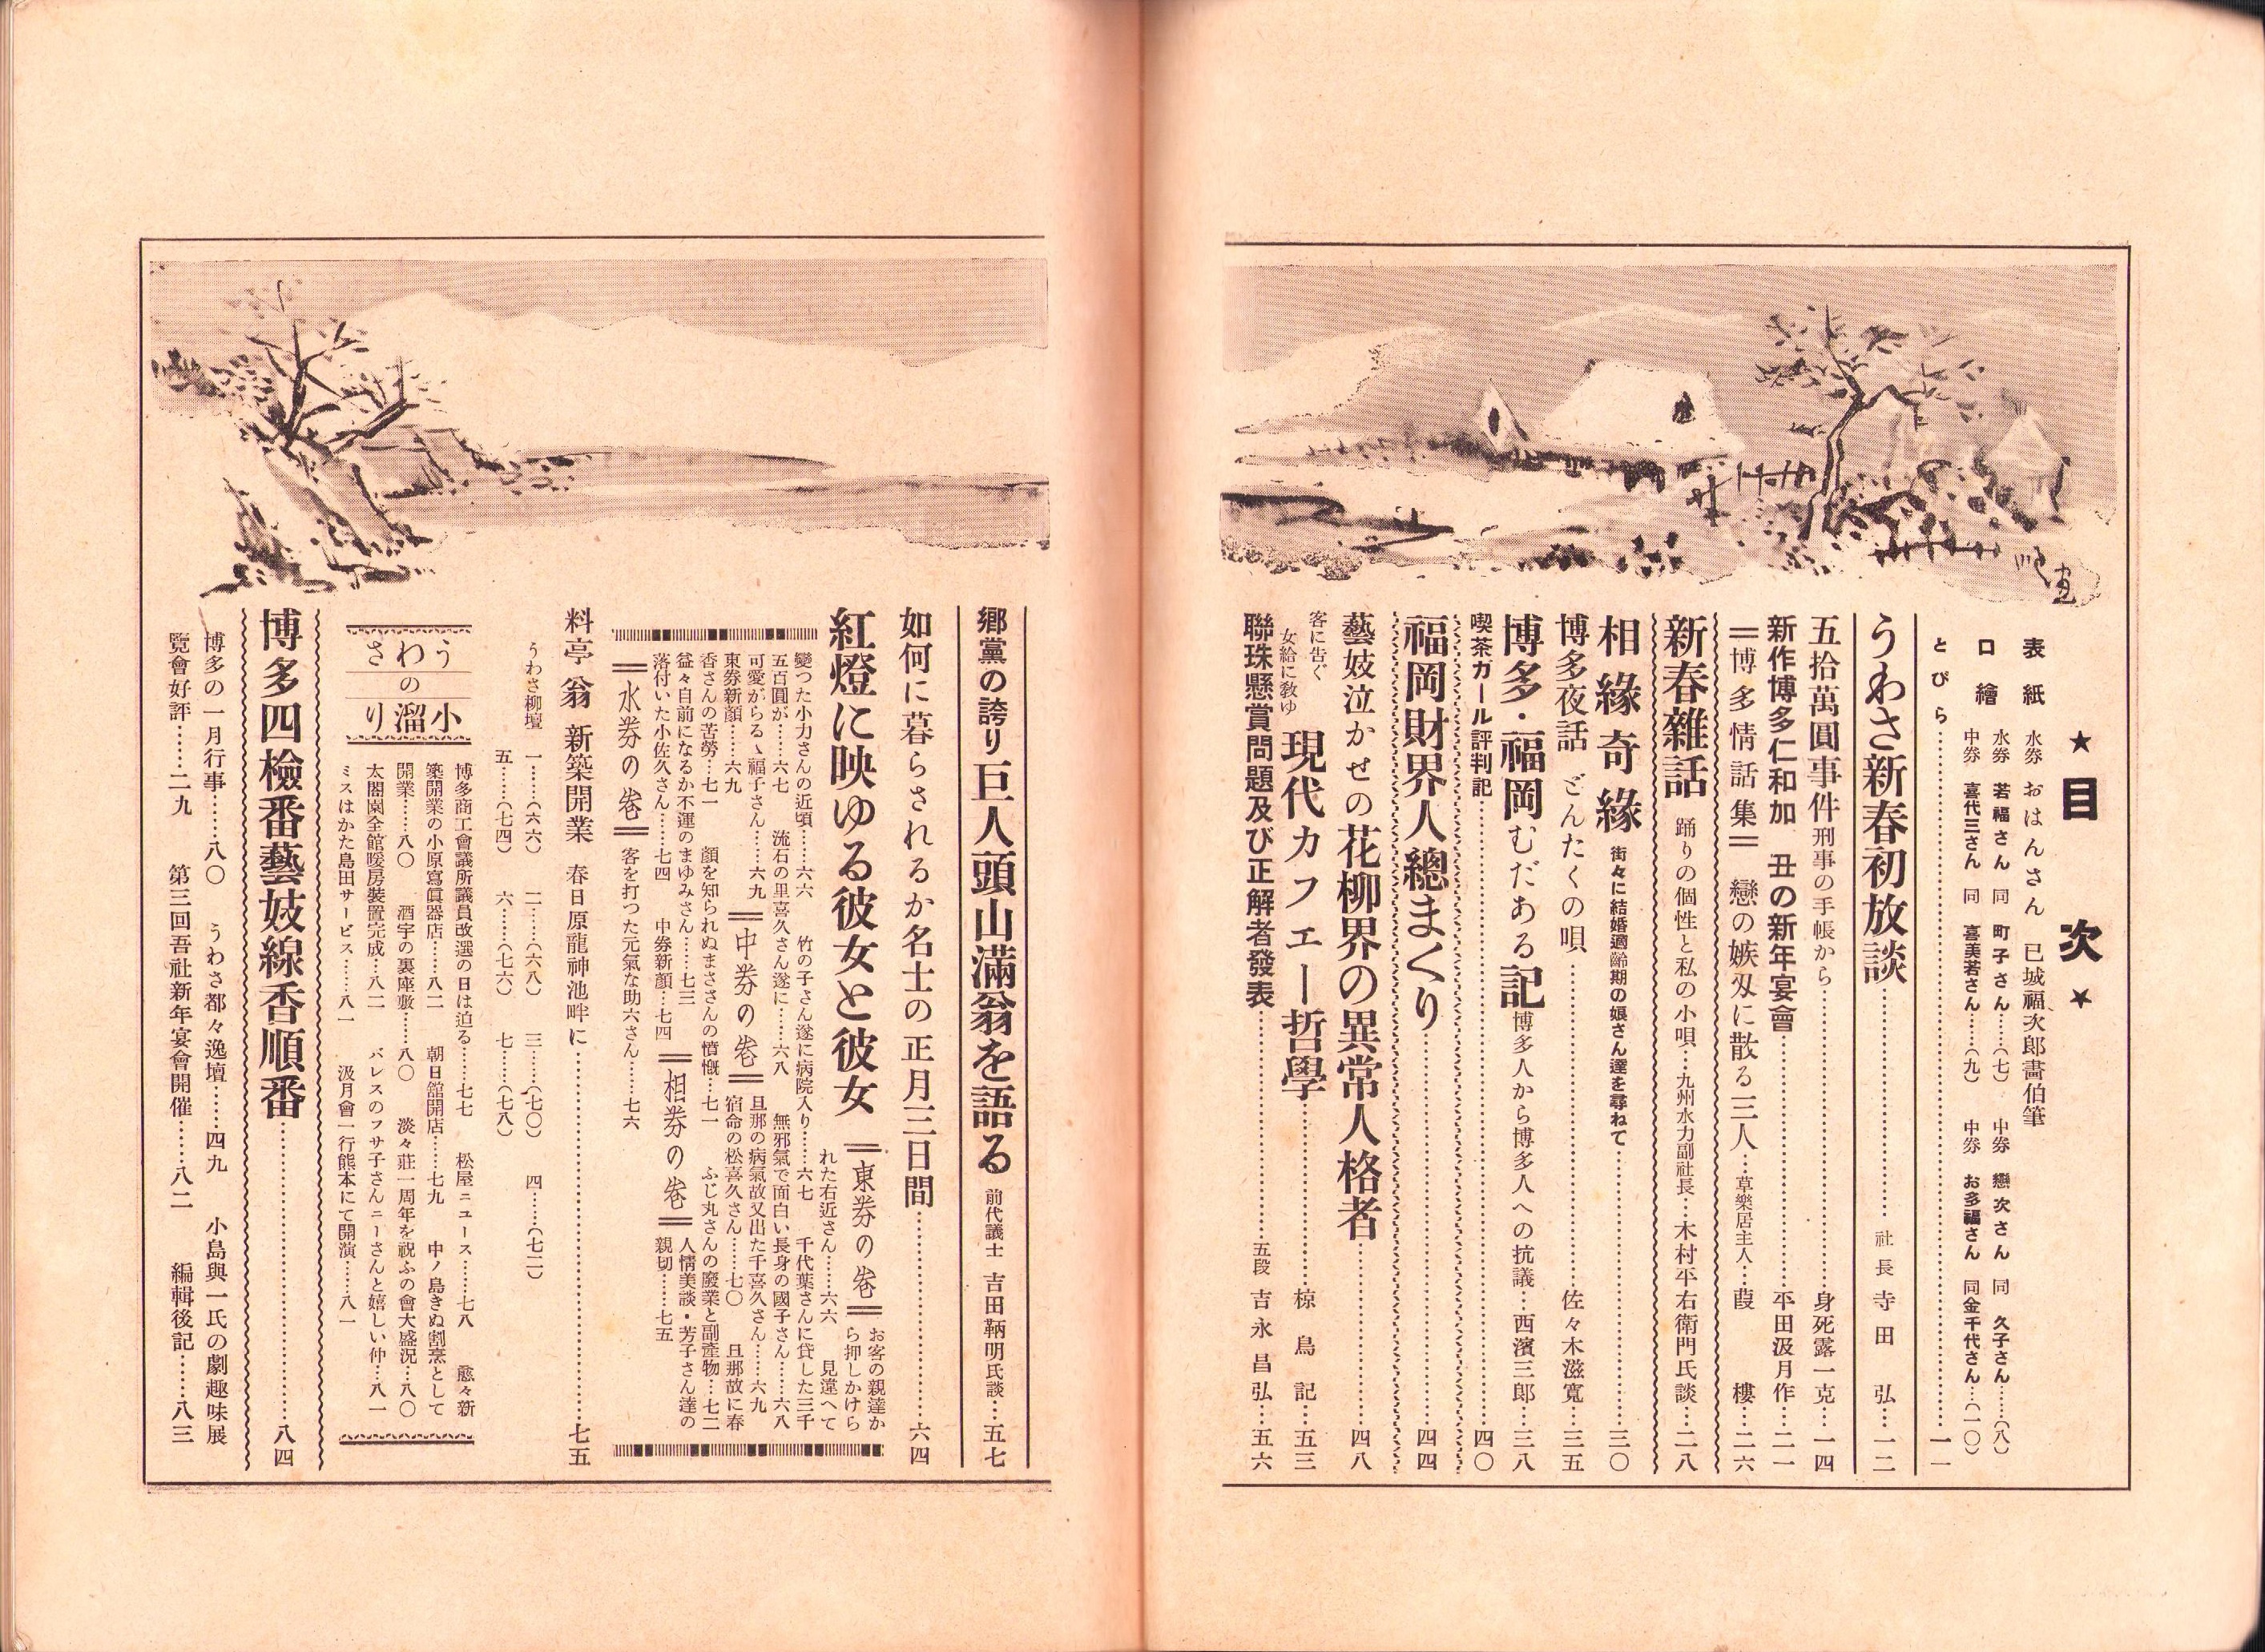 ★目次★
表紙 水券 おはんさん 巳城福次郎畫伯筆
口繪 水券 若福さん 同 町子さん……(七) 中券 戀次さん 同 久子さん……(八)
中券 喜代三さん 同 喜美若さん……(九) 中券 お多福さん 同 金千代さん…(一〇)
とびら……一一
うわさ新春初放談……社長 寺田弘…一二
五拾萬圓事件 刑事の手帳から……身死露一克…一四
新作博多仁和加 丑の新年宴會……平田汲月作…二一
＝博多情話集＝ 戀の嫉刄に散る三人…草樂居主人…葭樓…二六
新春雜話 踊りの個性と私の小唄…九州水力副社長…木村平右衛門氏談…二八
相緣奇緣 街々に結婚適齡期の娘さん達を尋ねて……三〇
博多夜話 どんたくの唄……佐々木滋寛…三五
博多・福岡むだある記 博多人から博多人への抗議…西濱三郎…三八
喫茶ガール評判記……四〇
福岡財界人總まくり……四四
藝妓泣かせの花柳界の異常人格者……四八
客に告ぐ
女給に敎ゆ 現代カフェー哲學……椋鳥記…五三
聯珠懸賞問題及び正解者發表……五段 吉永昌弘…五六
鄕黨の誇り巨人頭山滿翁を語る 前代議士 吉田鞆明氏談…五七
如何に暮らされるか名士の正月三日間……六四
紅燈に映ゆる彼女と彼女
＝東券の卷＝ お客の親達から押しかけられた右近さん……六六 見違へて
變つた小力さんの近頃……六六 竹の子さん遂に病院入り……六七 千代葉さんに貸した三千
五百圓が……六七 流石の里喜久さん遂に……六八 無邪氣で面白い長身の國子さん……六八
可愛がらるゝ福子さん……六九 ＝中券の卷＝ 旦那の病氣故又出た千喜久さん……六九
東券新顏……六九 宿命の松喜久さん……七〇 旦那故に春
香さんの苦勞…七一 顏を知られぬまささんの憤慨…七一 ふじ丸さんの廢業と副產物…七二
益々自前になるか不運のまゆみさん……七三 ＝相券の卷＝ 人情美談・芳子さん達の
落付いた小佐久さん……七四 中券新顏…七四 親切……七五
＝水券の卷＝ 客を打つた元氣な助六さん……七六
料亭 翁 新築開業 春日原龍神池畔に……七五
うわさ柳壇 一……(六六) 二……(六八) 三……(七〇) 四……(七二)
五……(七四) 六……(七六) 七……(七八)
うわさ
の
小溜り
博多商工會議所議員改選の日は迫る……七七 松屋ニュース……七八 愍々新
築開業の小原寫眞器店……八二 朝日舘開店……七九 中ノ島きぬ割烹として
開業……八〇 酒宇の裏座敷……八〇 淡々莊一周年を祝ふの會大盛況…八〇
太閤園全館暖房裝置完成…八二 バレスのフサ子さんニーさんと嬉しい仲…八一
ミスはかた島田サービス……八一 汲月會一行熊本にて開演……八一
博多四檢番藝妓線香順番……八四
博多の一月行事……八〇 うわさ都々逸壇……四九 小島與一氏の劇趣味展
覽會好評……二九 第三回吾社新年宴會開催……八二 編輯後記……八三